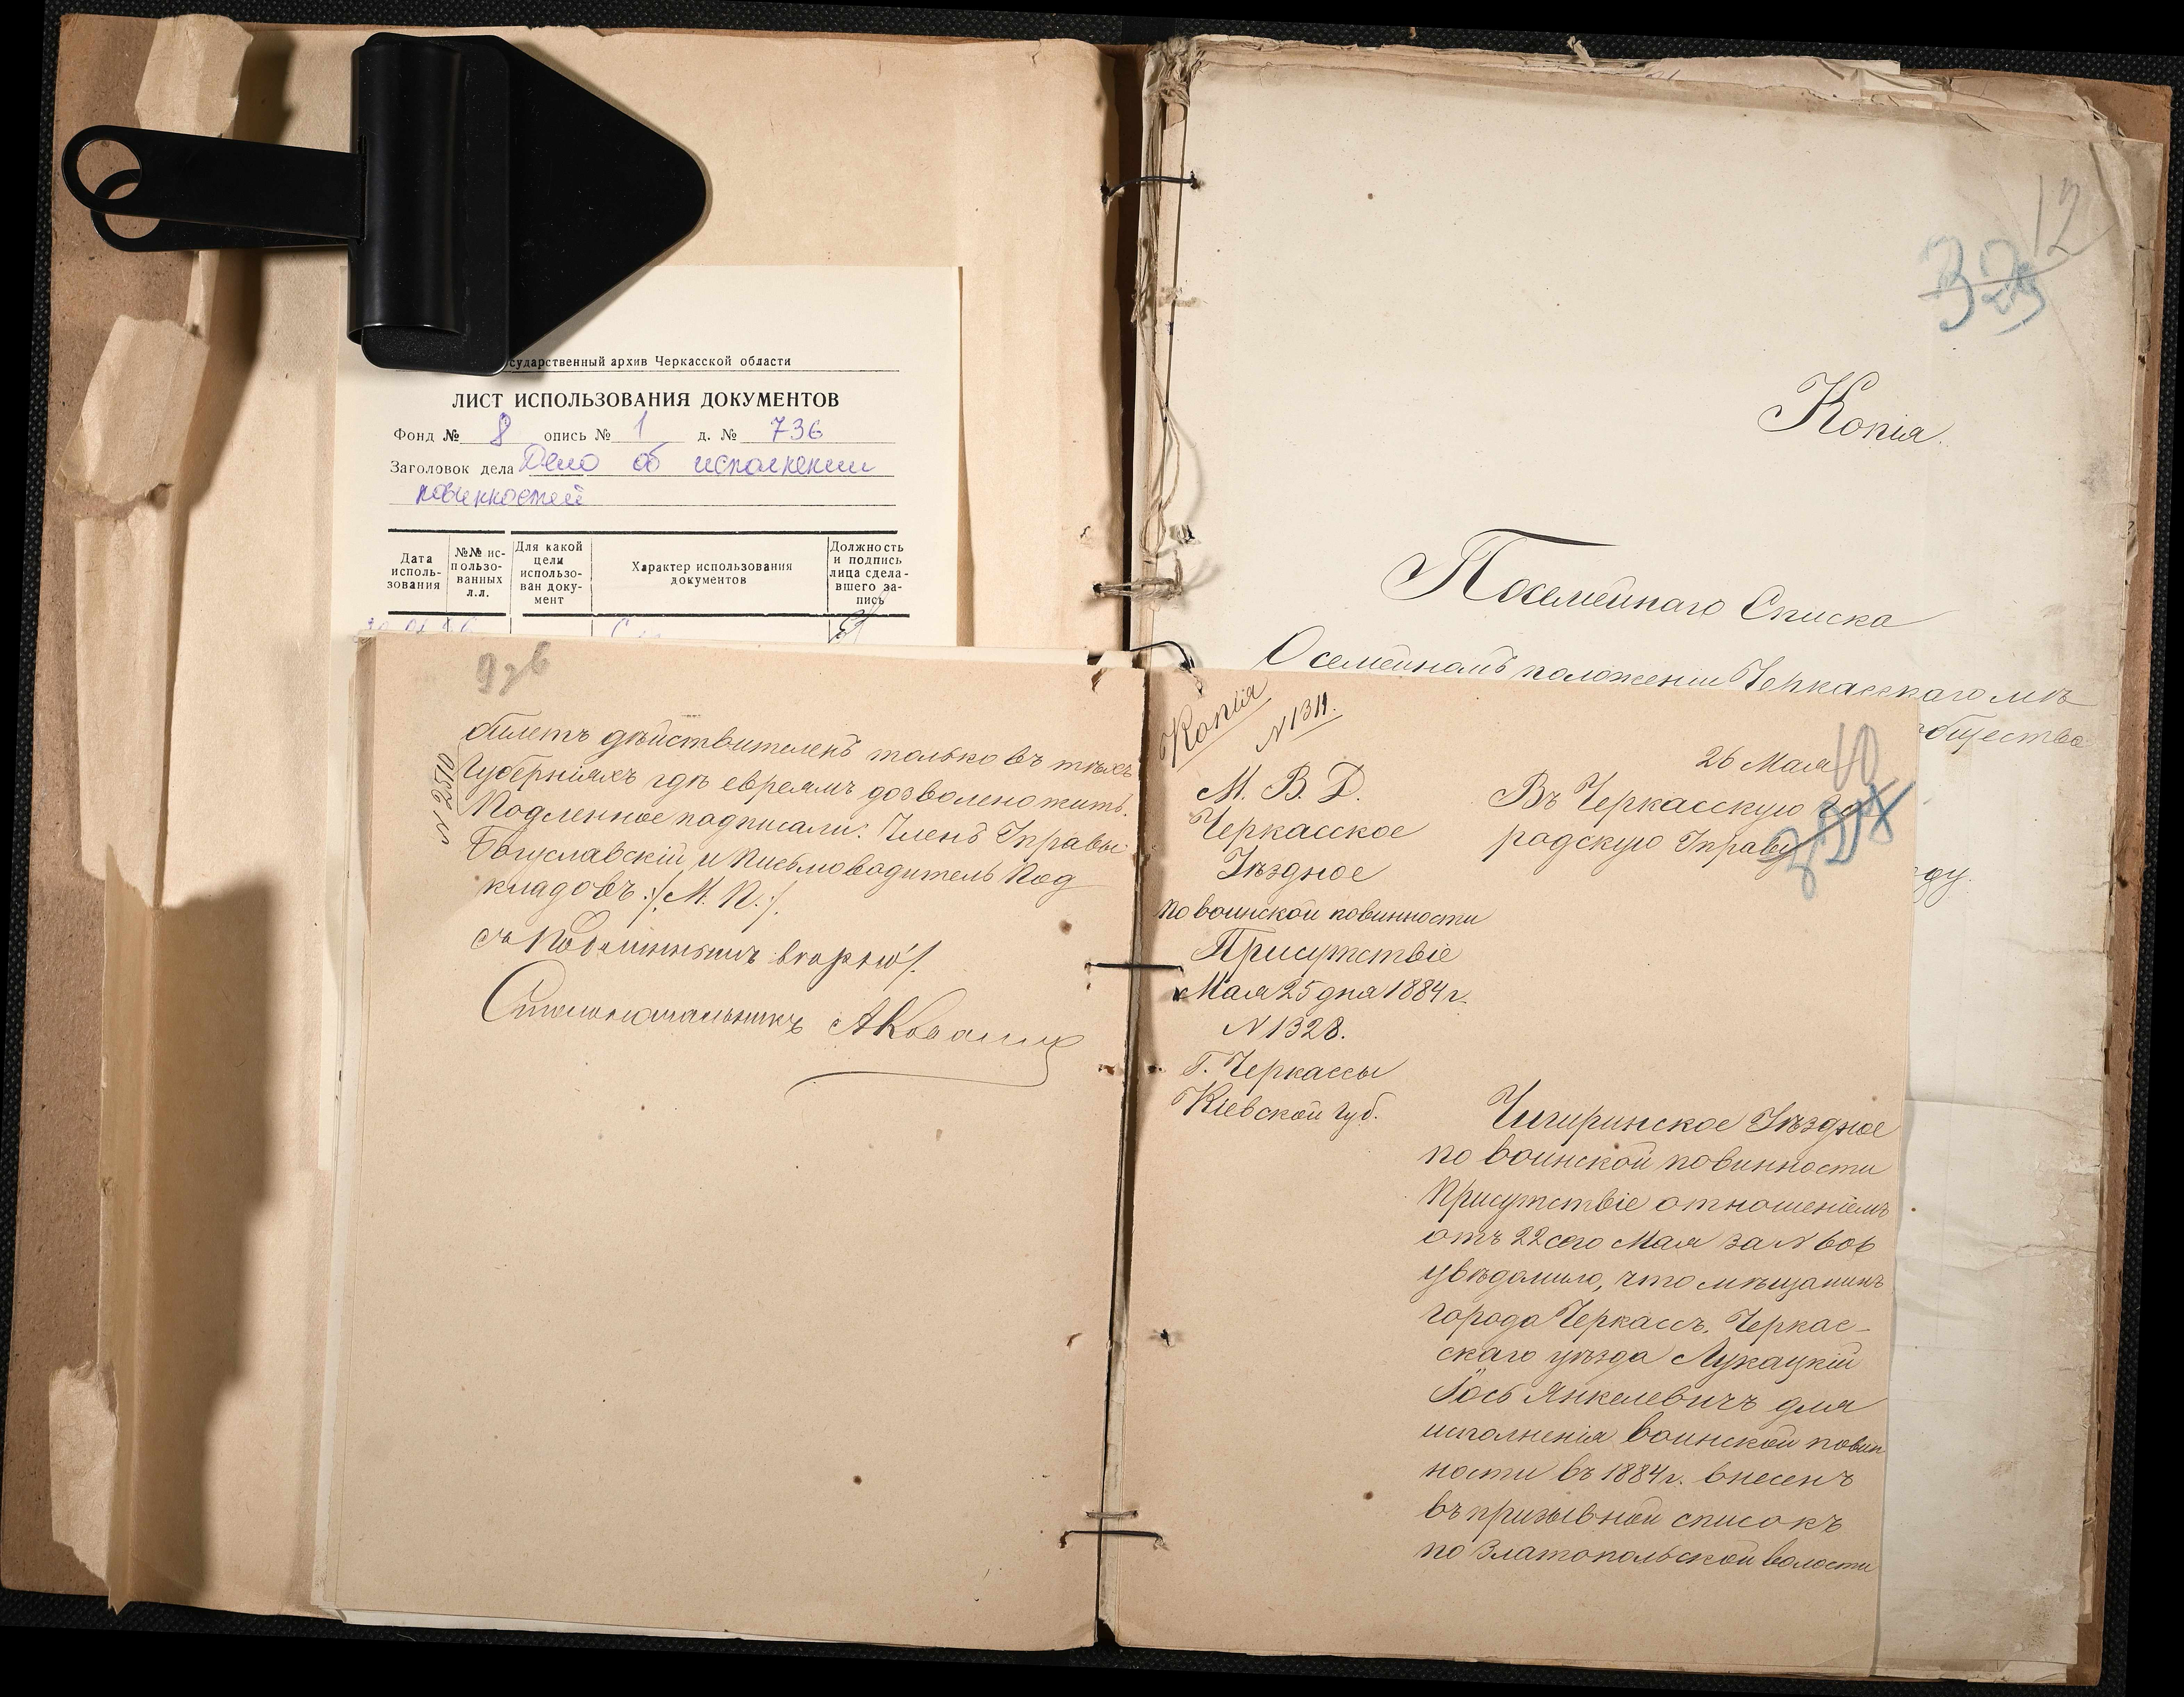 сударственный архив Черкасской области
ЛИСТ ИСПОЛЬЗОВАНИЯ ДОКУМЕНТОВ
Фонд № 8 опись № 1 д. № 736
Заголовок дела Дело об исполнении
повинностей
Дата исполь-зования
№№ ис-пользо-ванных л.л.
Для какой цели использо-ван доку-мент
Характер использования документов
Должность и подпись лица сдела-вшего за-пись
N 2510
билетъ дѣйствителенъ только въ тѣхъ
Губерніяхъ гдѣ евреямъ дозволено жить.
Подленное подписали: Членъ Управы
Богуславскій и Письмоводитель Под
кладовъ :/. М. П. :/.
Съ подлиннымъ вѣрно:/.
Столоначальникъ
12
Копія.
Посемейнаго Списка
О семейномъ положеніи Черкасскаго мѣ
общества
ду.
Копія
N 1311.
М. В. Д.
Черкасское
Уѣздное
по воинской повинности
Присутствіе
Мая 25 дня 1884 г.
N 1328.
Г. Черкассы
Кіевской губ.
26 Мая
10
Въ Черкасскую Го
родскую Управу
Чигиринское Уѣздное
по воинской повинности
Присутствіе отношеніемъ
отъ 22 сего Мая за N 606
увѣдомило, что мѣщанинъ
города Черкассъ, Черкас-
скаго уѣзда Лукацкій
Іось Янкелевичъ для
исполненія воинской повин
ности въ 1884 г. внесенъ
въ призывной списокъ
по Златопольской волости